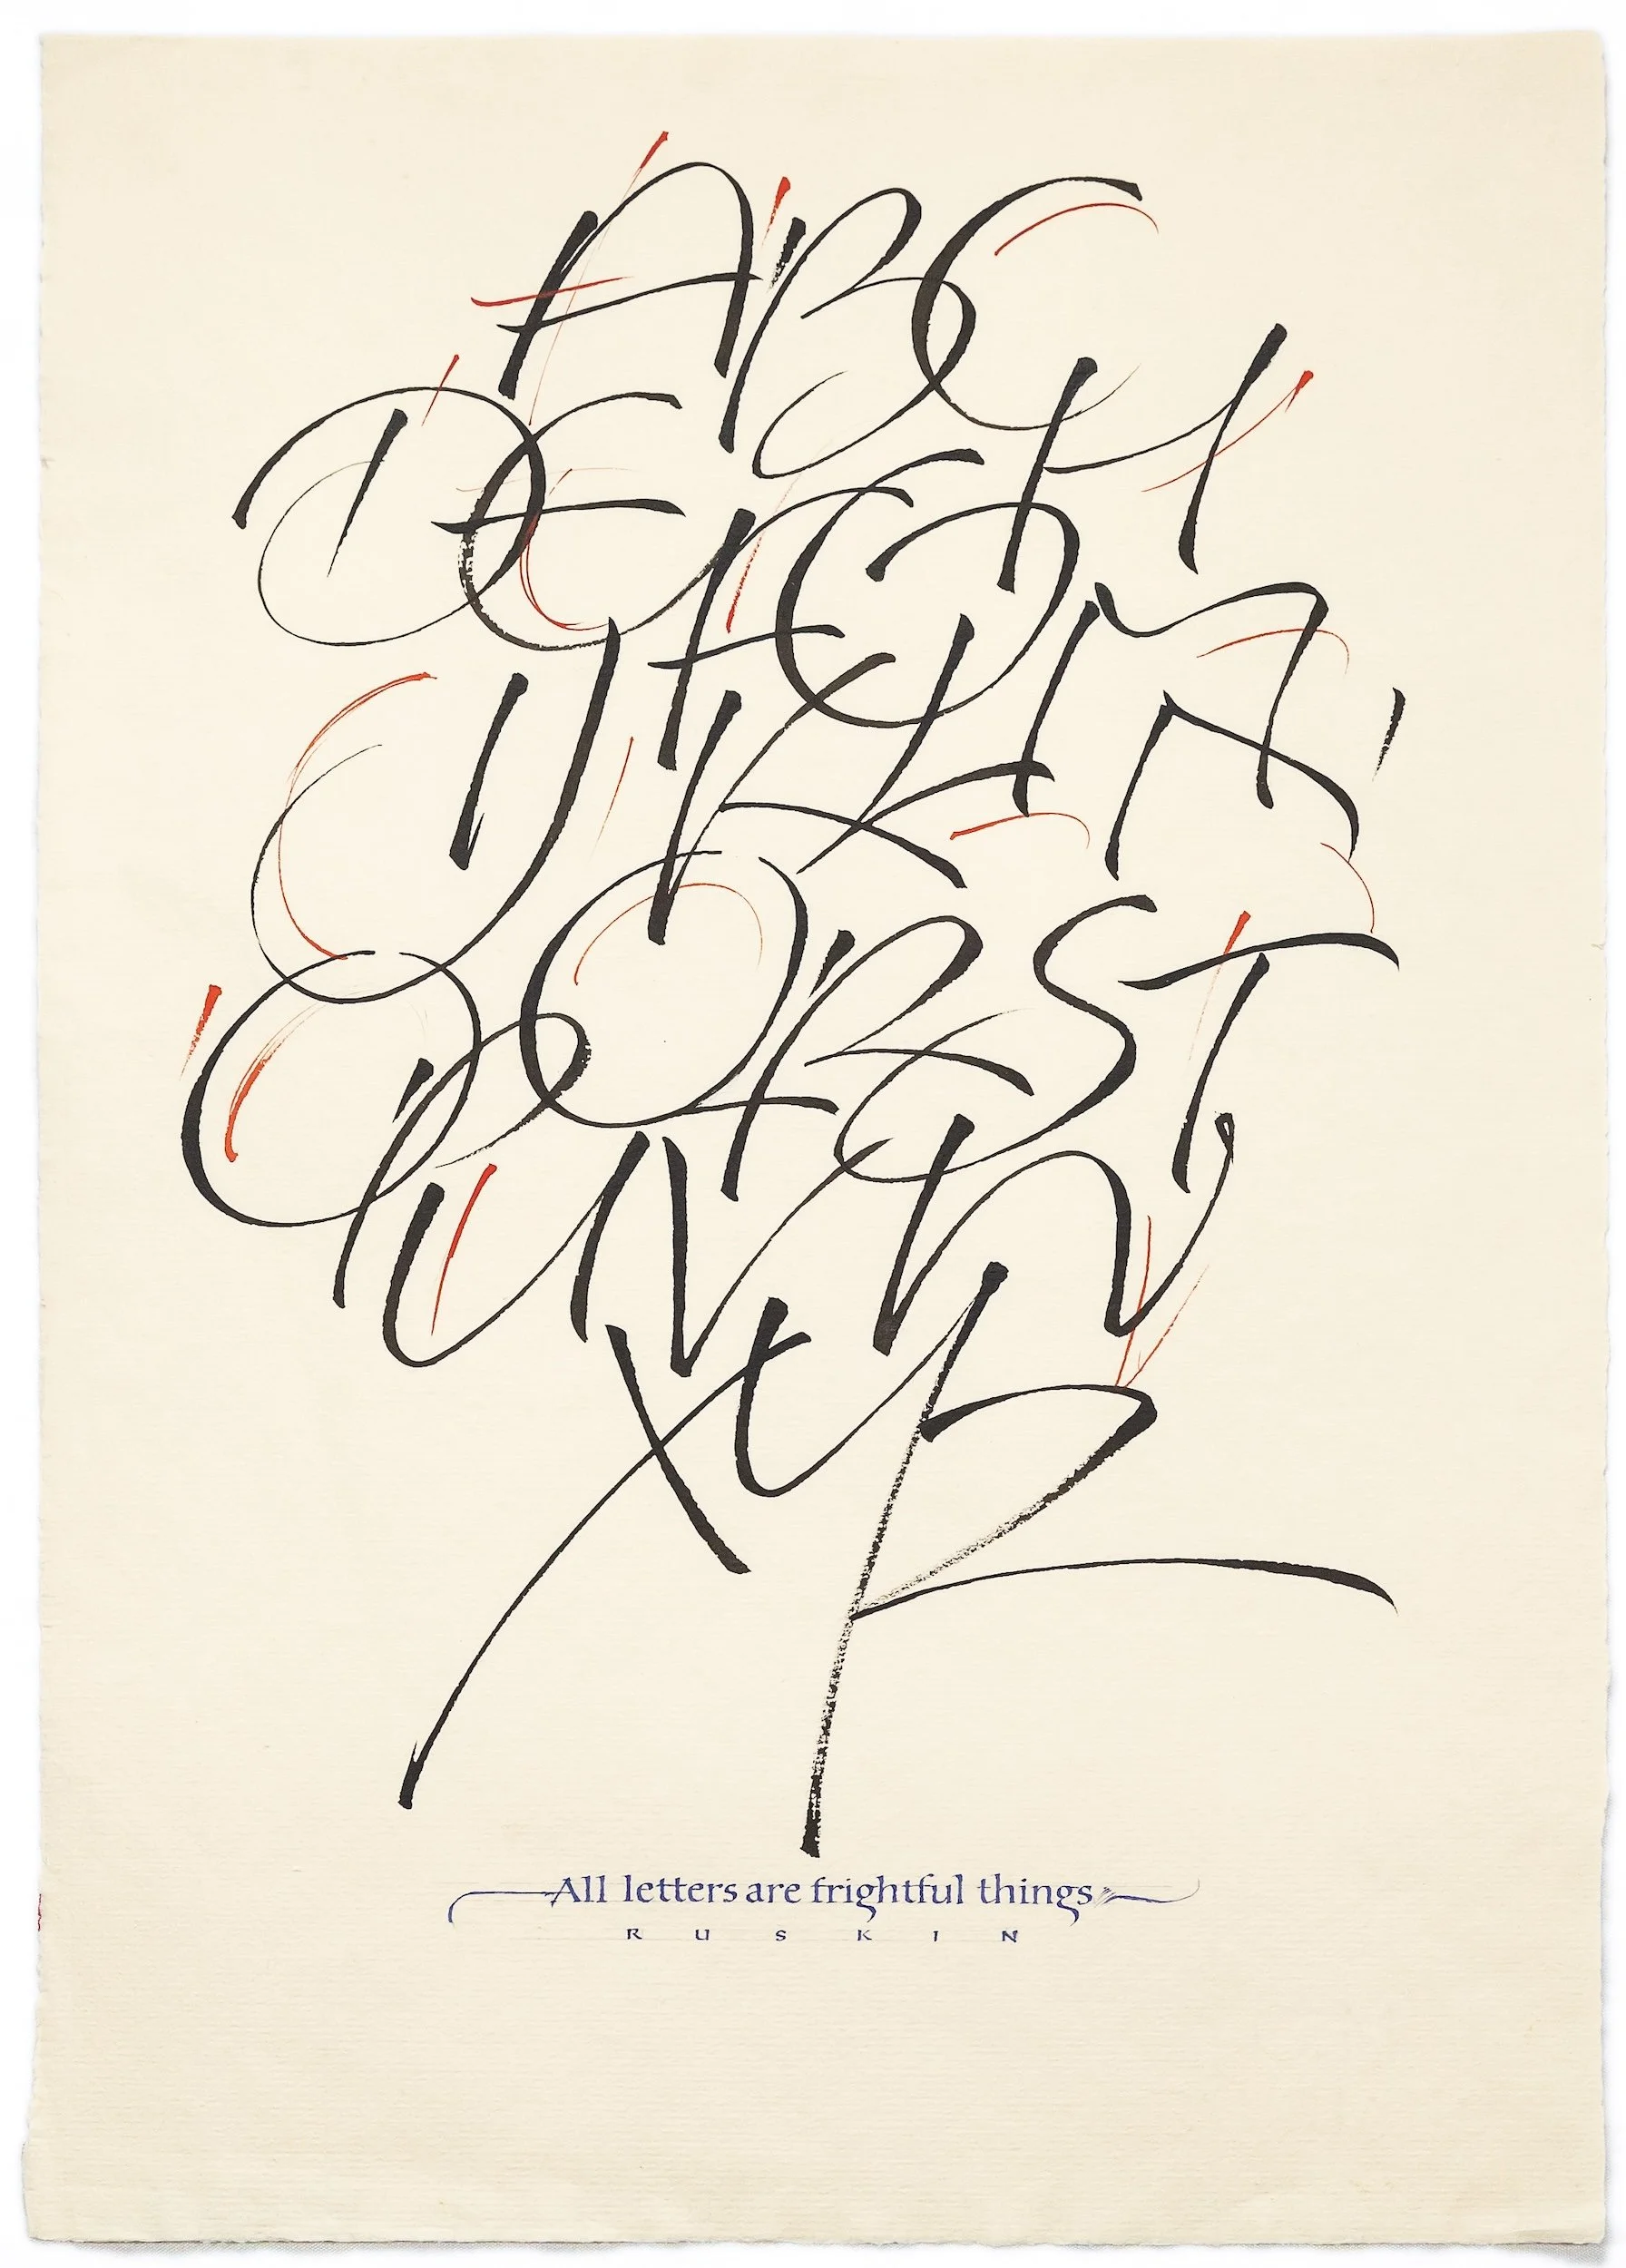 ABC
DEFGH
IJKLM
OPQRST
UVW
XYZ
All letters are frightful things
RUSKIN